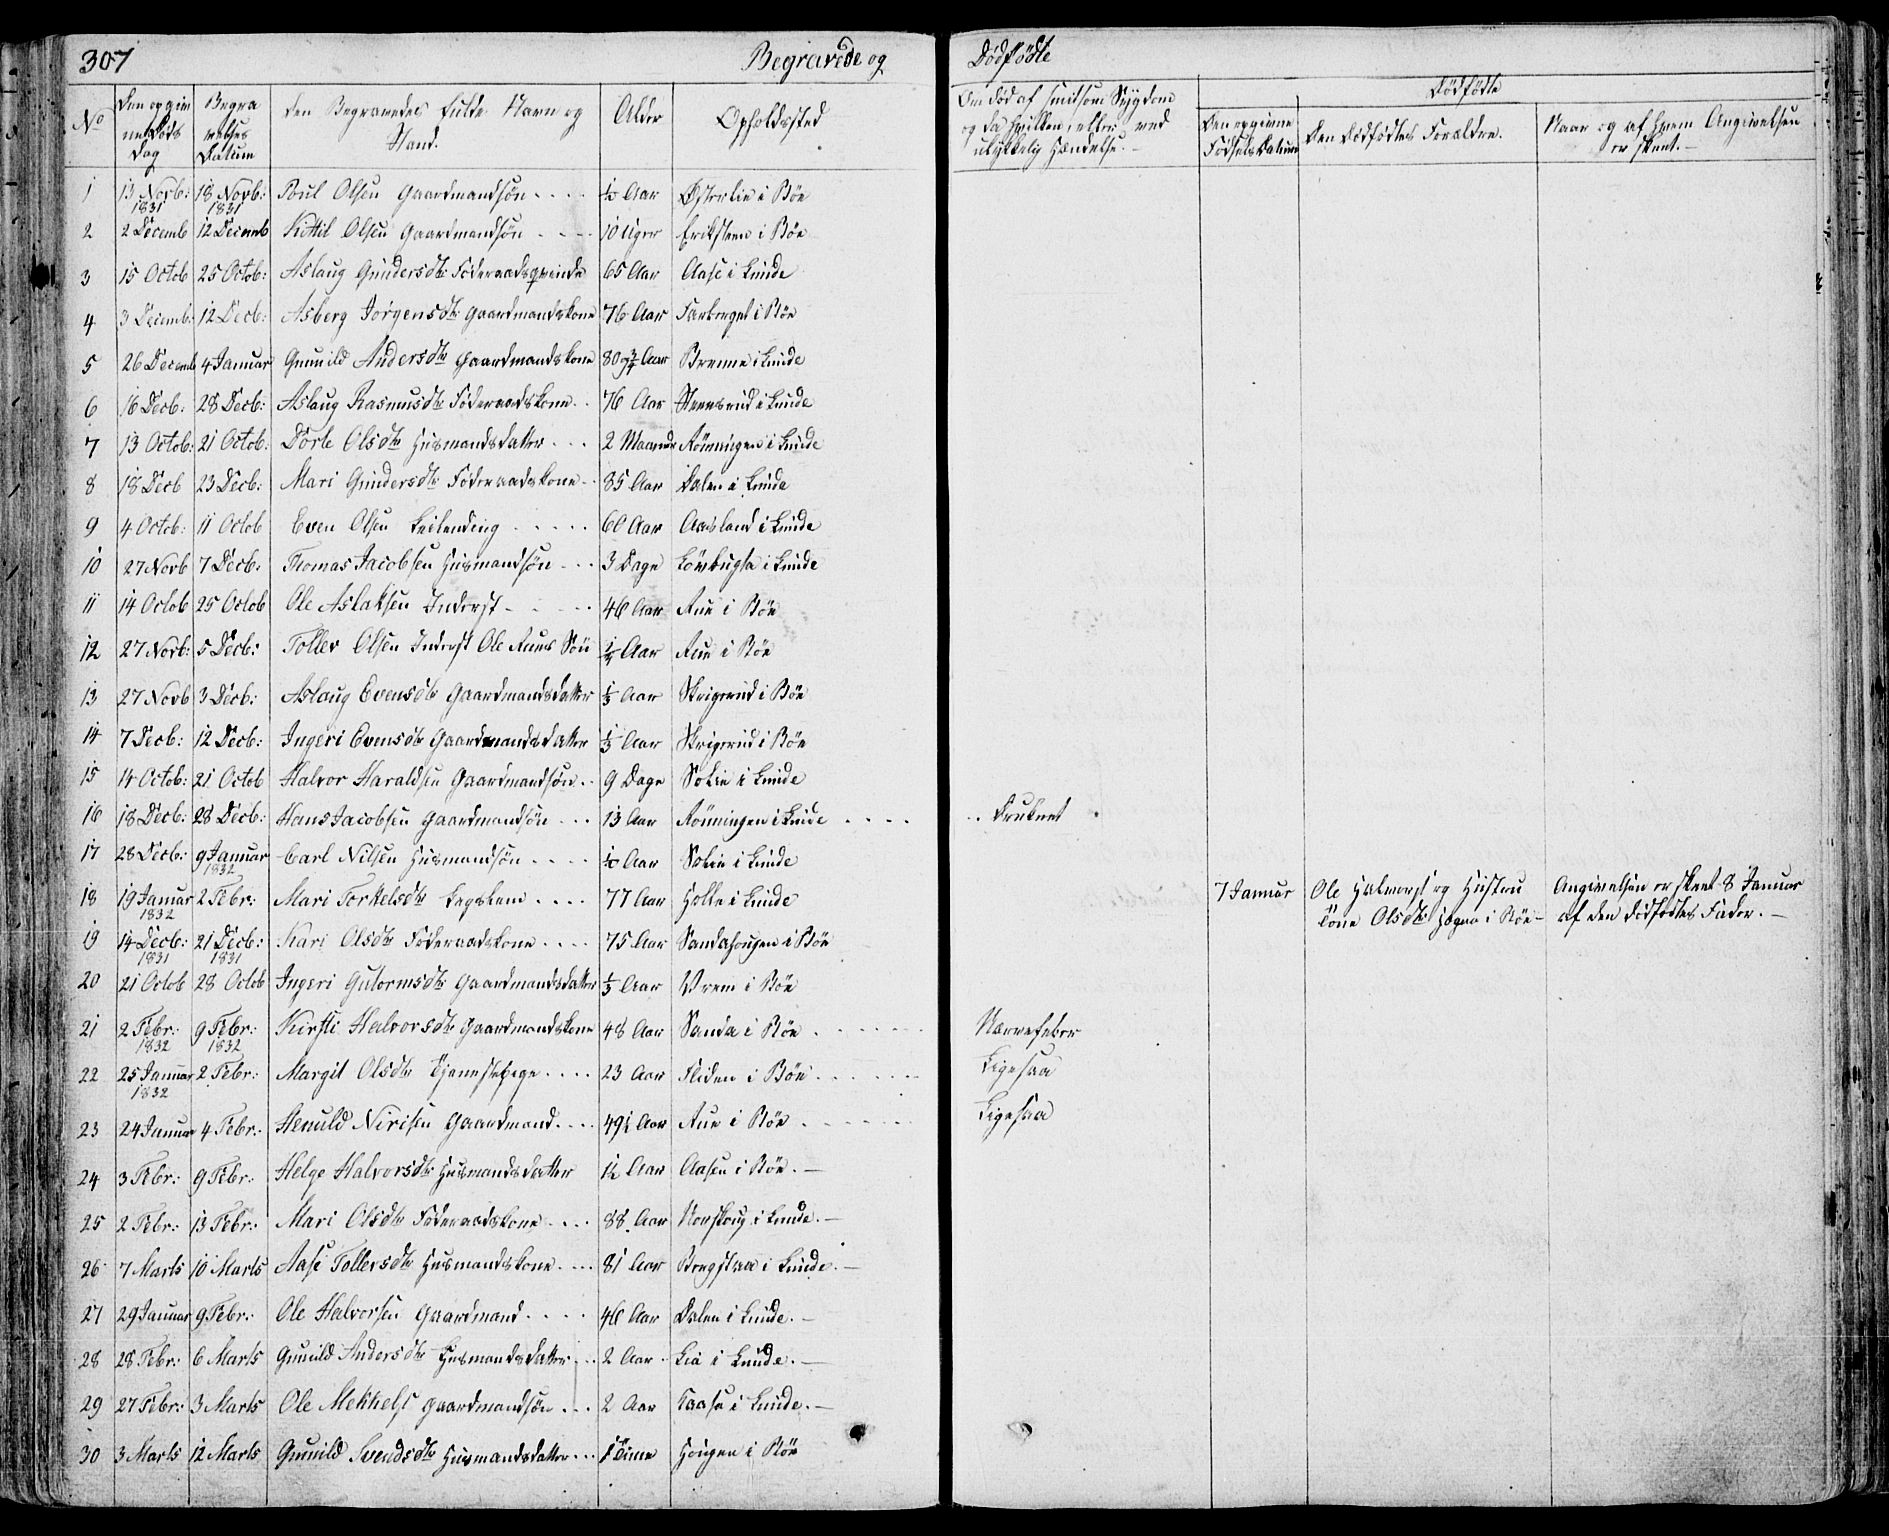 307 Begravede og Dödfödte
No Den opgivne Döds Dag Begravelses Datum Den Begravedes fulde Navn og Stand. Alder Opholdssted Om död af smitsom Sygdom og da hvilken, eller ved ulykkelig Hændelse. Dödfödte
Den opgivne Födsels Datum Den Dödfödtes Forældre. Naar og af hvem Angivelsen er skeet.
1 13 Novb: 1831 18 Novb: 1831 Poul Olsen Gaardmandsön Aar Österlie i Böe
2 2 Decemb 12 Decemb Kittil Olsen Gaardmandsön 10 Uger Eriksteen i Böe
3 15 Octob 25 Octob: Aslaug Gundersdtr Föderaadsqvinde 65 Aar Aase i Lunde
4 3 Decemb: 12 Decb: Asberg Jörgensdtr Gaardmandskone 76 Aar Farberget i Böe
5 26 Decemb 4 Januar Gunnild Andersdtr Gaardmandskone 80 3/4 Aar Brenne i Lunde
6 16 Decb: 28 Decb: Aslaug Rasmusdtr Föderaadskone 76 Aar Steensrud i Lunde
7 13 Octob: 21 Octob: Dorte Olsdtr Husmandsdatter 2 Maaneder Rönningen i Lunde
8 18 Decb 23 Decb: Mari Gundersdtr Föderaadskone 85 Aar Dalen i Lunde
9 4 Octob: 11 Octob Even Olsen Leilending 60 Aar Aasland i Lunde
10 27 Novb 7 Decb: Thomas Jacobsen Husmandsön 3 Dage Lövbugta i Lunde
11 14 Octob 25 Octob Ole Aslaksen Inderst 46 Aar Rue i Böe
12 27 Novb: 5 Decb: Tollev Olsen Inderst Ole Rues Sön 1/4 Aar Rue i Böe
13 27 Novb 3 Decb: Aslaug Evensdtr Gaardmandsdatter 1/3 Aar Skrigerud i Böe
14 7 Decb: 12 Decb: Ingeri Evensdtr Gaardmandsdatter 1/3 Aar Skrigerud i Böe
15 14 Octob: 21 Octob Halvor Haraldsen Gaardmandsön 9 Dage Solie i Lunde
16 18 Decb: 28 Decb: Hans Jacobsen Gaardmandsön 13 Aar Rönningen i Lunde Druknet
17 28 Decb: 9 Januar 1832 Carl Nilsen Husmandsön Aar Solie i Lunde
18 19 Januar 1832 2 Febr: Mari Torkelsdtr Legslem 77 Aar Holte i Lunde 7 Januar Ole Halvorst og Hustru Angivelsen er skeet 8 Januar
Tone Olsdtr Hogna i Böe af den dödfödtes Fader.
19 14 Decb: 1831 21 Decb: 1831 Kari Olsdtr Föderaadskone 75 Aar Sandahougen i Böe
20 21 Octob 28 Octob Ingeri Gutormsdtr Gaardmandsdatter 1/3 Aar Vreim i Böe
21 2 Febr: 1832 9 Febr: 1832 Kirsti Halvorsdtr Gaardmandskone 48 Aar Sanda i Böe Nervefeber
22 25 Januar 1832 2 Febr: Margit Olsdtr Tjenestepige 23 Aar Fliden i Böe Ligesaa
23 24 Januar 4 Febr: Henuld Nirisen Gaardmand 49½ Aar Rue i Böe Ligesaa
24 3 Febr: 9 Febr: Helge Halvorsdtr Husmandsdatter 1½ Aar Aasen i Böe.
25 2 Febr: 13 Febr: Mari Olsdtr Föderaadskone 88 Aar Norskoug i Lunde.
26 7 Marts 10 Marts Aase Tollevsdtr Husmandskone 81 Aar Bregstaa i Lunde.
27 29 Januar 9 Febr: Ole Halvorsen Gaardmand 46 Aar Dalen i Lunde.
28 28 Febr: 6 Marts Gunild Andersdtr Husmandsdatter 2 Aar Lia i Lunde.
29 27 Febr: 3 Marts Ole Mekkelst Gaardmandsön 2 Aar Kaasa i Lunde.
30 3 Marts 12 Marts Gunild Svendsdtr Husmandsdatter 1 Time Hougen i Böe